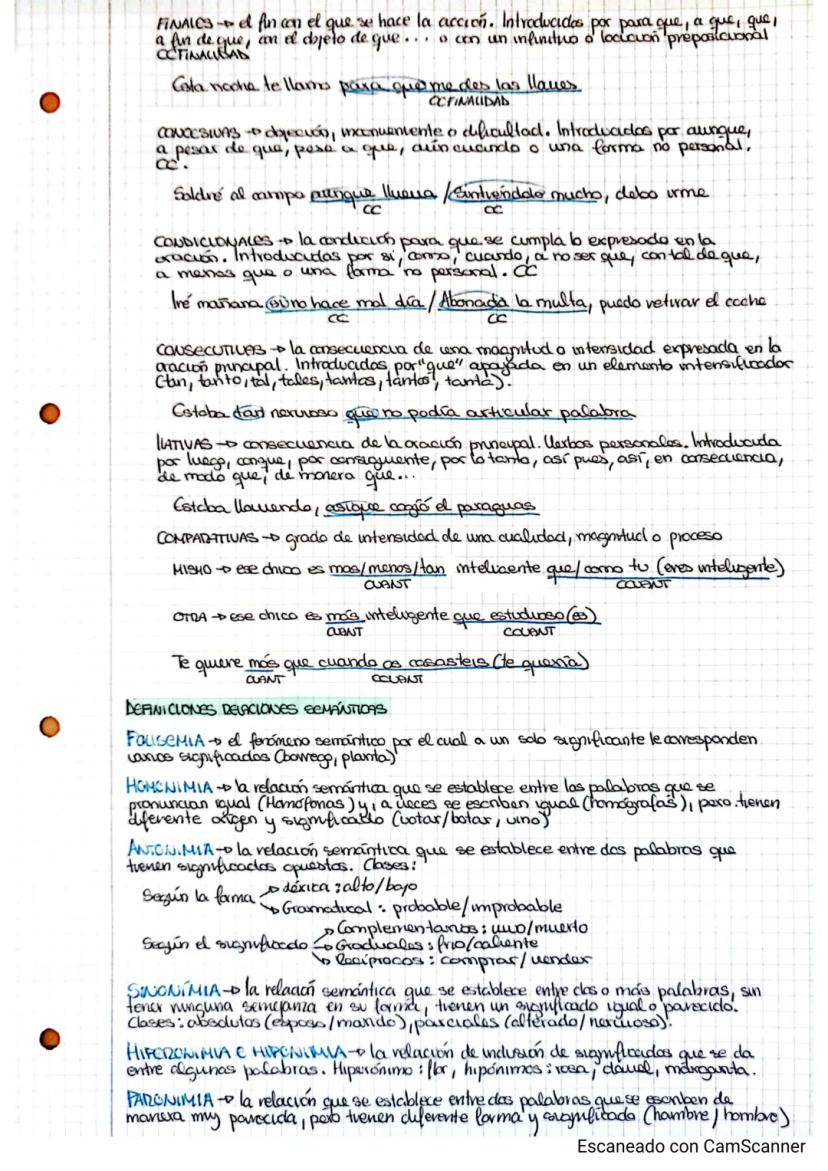 FINALES → el fin con el que se hace la acción. Introducidas por para que, a que, que,
a fin de que, con el objeto de que... o con un infinitivo o locución preposicional
CCFINALIDAD
Esta noche te llamo para que me des las llaves
CCFINALIDAD
CONCESIVAS → objeción, inconveniente o dificultad. Introducidas por aunque,
a pesar de que, pese a que, aún cuando o una forma no personal.
CC.
Saldré al campo aunque llueva / Sintiéndolo mucho, debo irme
CC CC
CONDICIONALES → la condición para que se cumpla lo expresado en la
oración. Introducidas por si, como, cuando, a no ser que, con tal de que,
a menos que o una forma no personal. CC
Iré mañana si no hace mal día / Abonada la multa, puedo retirar el coche
CC CC
CONSECUTIVAS → la consecuencia de una magnitud o intensidad expresada en la
oración principal. Introducidas por "que" apoyada en un elemento intensificador
(tan, tanto, tal, tales, tantas, tantos, tanta).
Estaba tan nervioso que no podía articular palabra
ILATIVAS → consecuencia de la oración principal. Verbos personales. Introducida
por luego, conque, por consiguiente, por lo tanto, así pues, así, en consecuencia,
de modo que, de manera que...
Estaba lloviendo, asique cogió el paraguas
COMPARATIVAS → grado de intensidad de una cualidad, magnitud o proceso
MISMO → ese chico es mas/menos/tan inteligente que/como tu (eres inteligente)
CUANT CCUANT
OTRA → ese chico es más inteligente que estudioso (es)
CUANT CCUANT
Te quiere más que cuando os casasteis (te quería)
CUANT CCUANT
DEFINICIONES RELACIONES SEMÁNTICAS
POLISEMIA → el fenómeno semántico por el cual a un solo significante le corresponden
varios significados (borrego, planta)
HOMONIMIA → la relación semántica que se establece entre las palabras que se
pronuncian igual (Homófonas) y, a veces se escriben igual (homógrafas), pero tienen
diferente origen y significado (votar/botar, vino)
ANTONIMIA → la relación semántica que se establece entre dos palabras que
tienen significados opuestos. Clases:
Según la forma → léxica: alto/bajo
→ Gramatical: probable/improbable
→ Complementarios: vivo/muerto
Según el significado → Graduales: frío/caliente
→ Recíprocos: comprar/vender
SINONÍMIA → la relación semántica que se establece entre dos o más palabras, sin
tener ninguna semejanza en su forma, tienen un significado igual o parecido.
Clases: absolutos (esposo/marido), parciales (alterado/nervioso).
HIPERONIMIA E HIPONIMIA → la relación de inclusión de significados que se da
entre algunas palabras. Hiperónimo: flor, hipónimos: rosa, clavel, margarita.
PARONIMIA → la relación que se establece entre dos palabras que se escriben de
manera muy parecida, pero tienen diferente forma y significado (hambre/hombre)
Escaneado con CamScanner